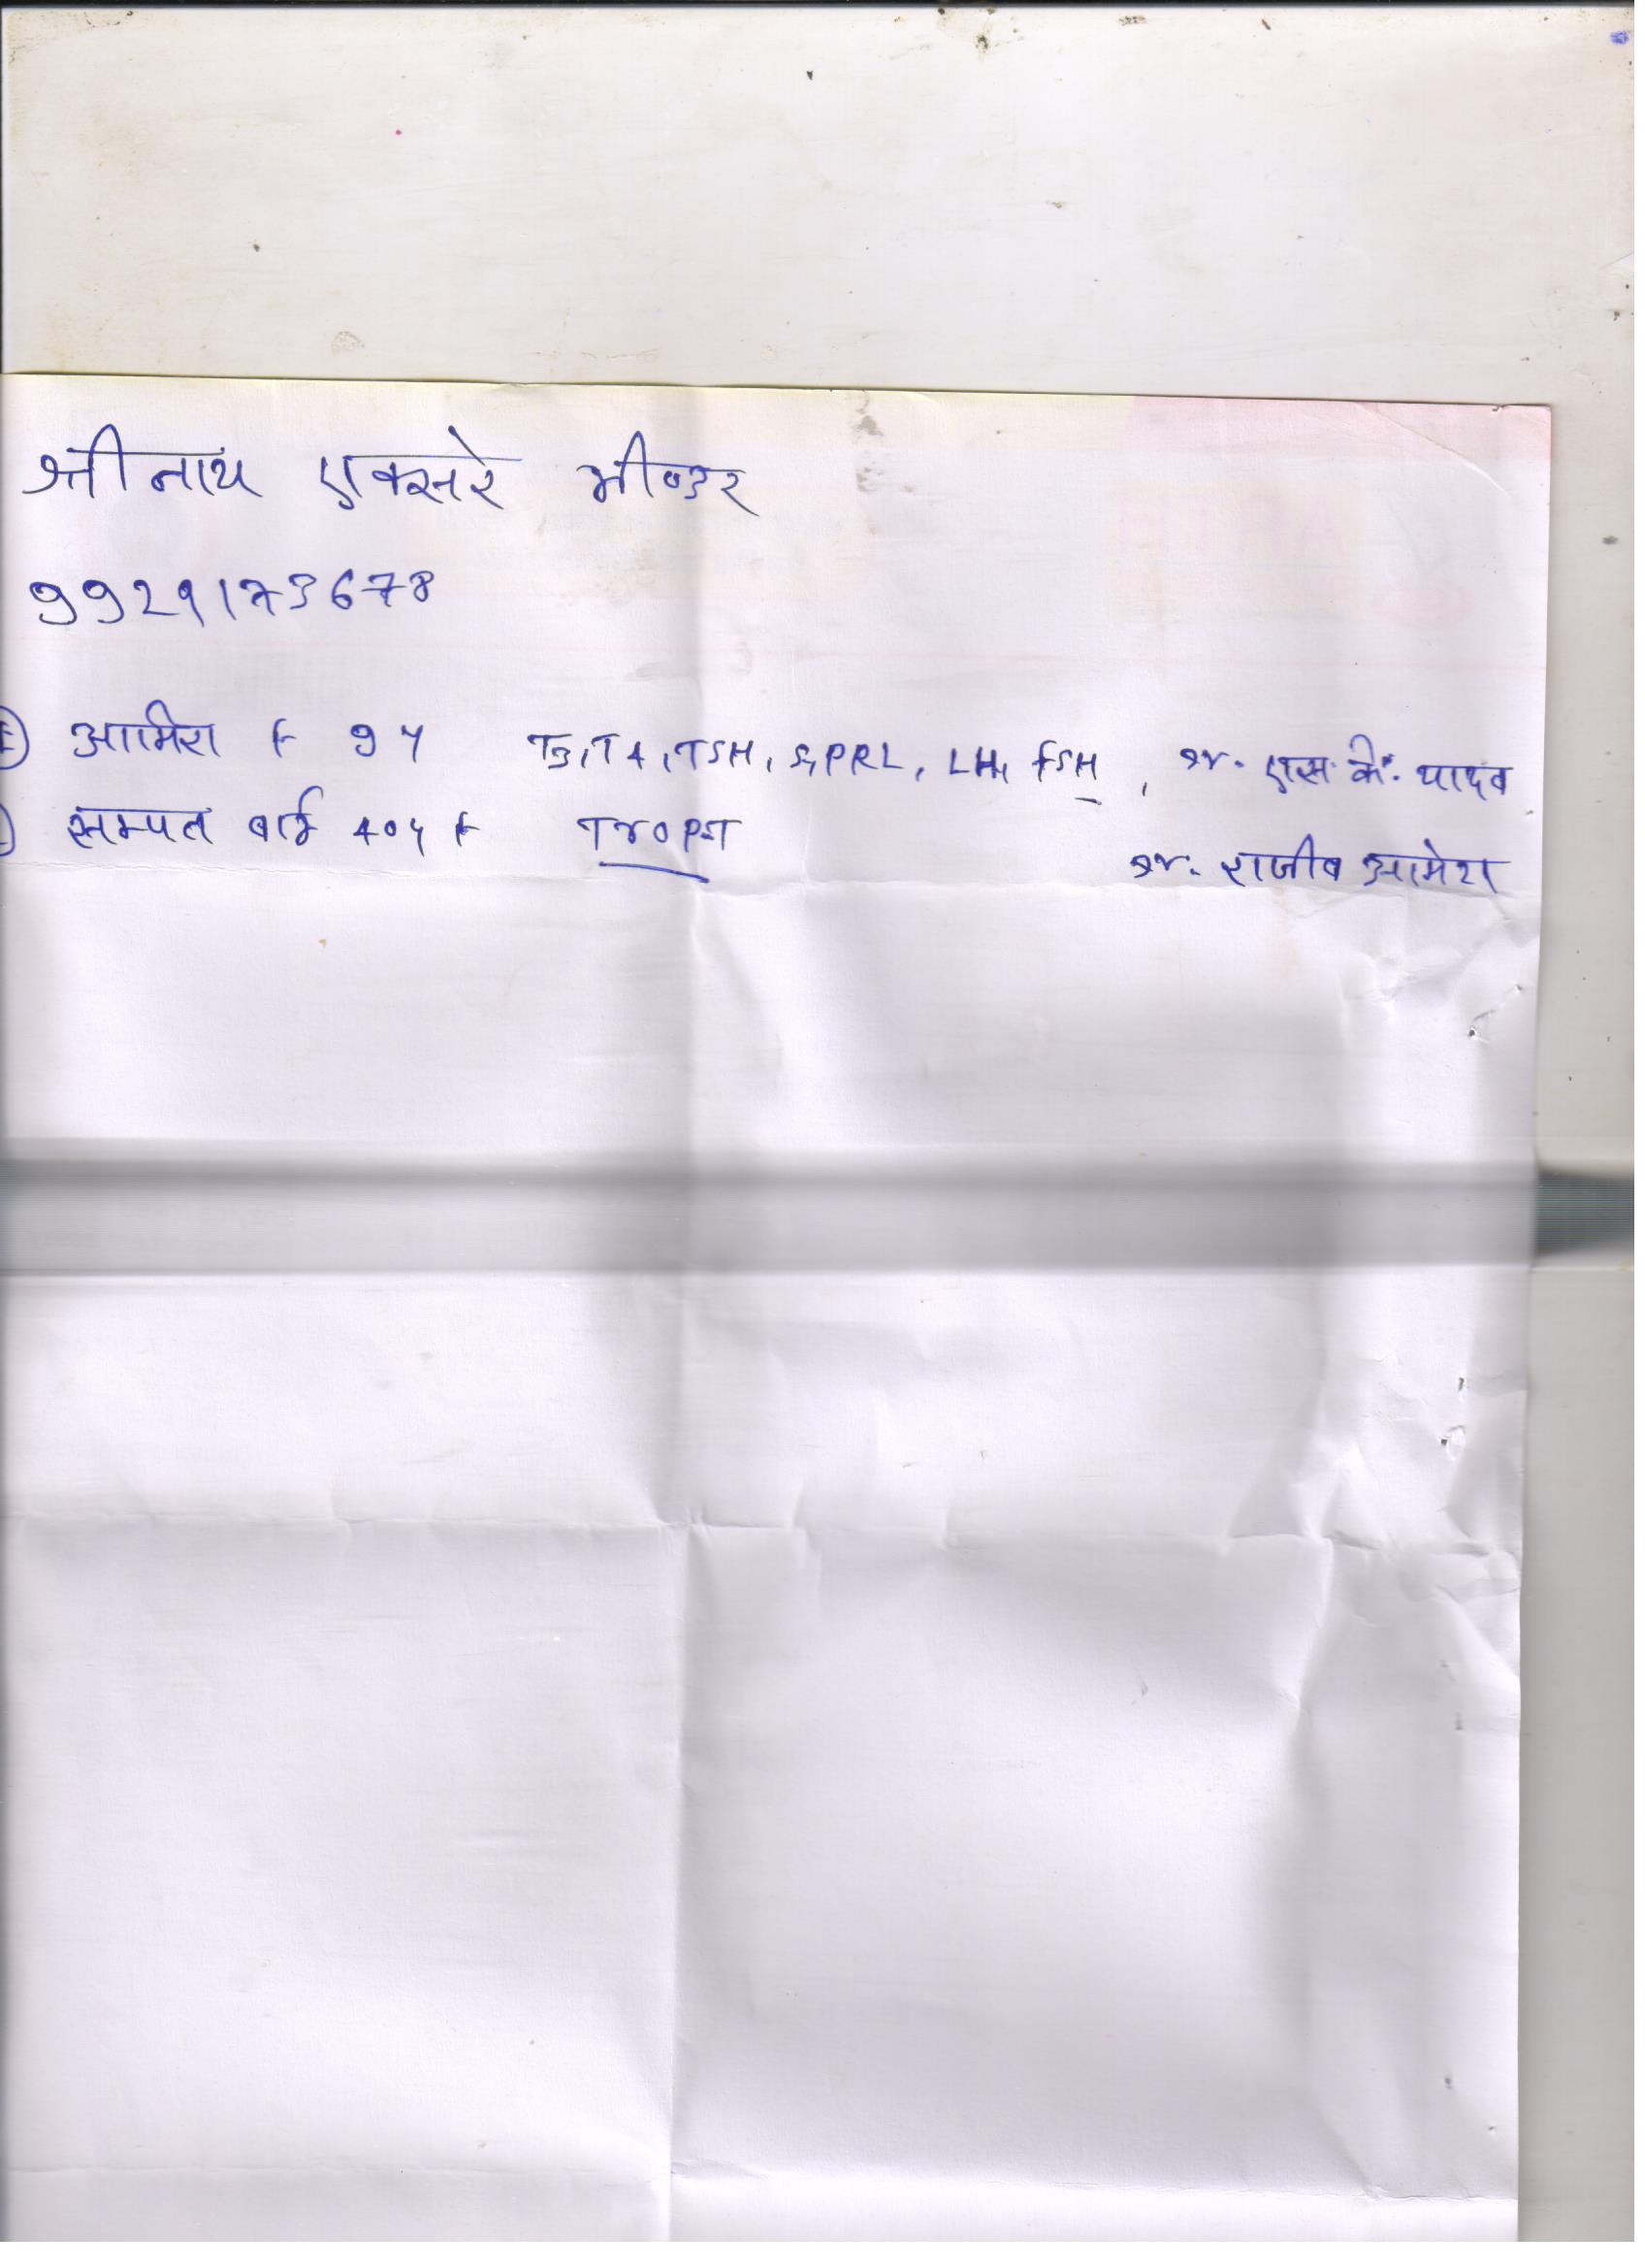 श्रीनाथ एक्सरे भीण्डर
9929173678
आमिरा F 9 Y T3, T4, TSH, S, PRL, LH, FSH, डॉ. एस. के. यादव
सम्पत बाई 40 Y F डॉ. राजीव आमेरा